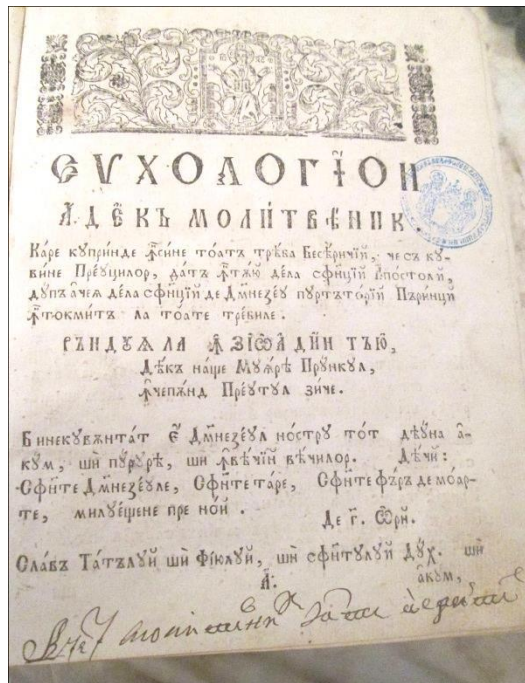 ЄѴХОЛОГЇѠН
АДЕ́КЪ МОЛИ́ТВЕ́НИК.
Ка́ре купри́нде ꙟ҆си́не то́атъ тре́ба Бесе́ричїй, че съ ку-
ви́не Прео́уцилор, да́тъ ꙟ҆тѫ́ю де́ла сфи́нцїй А҆по́столи,
ду́пъ а҆че́ѧ де́ла сфи́нцїй де Дм҃незе́у пуртъто́рїй Пъри́нци
ꙟ҆токми́тъ ла то́ате тре́биле.
РЪНДУѦЛА ꙞЗИѠА ДИ́Н ТЪЮ,
Де́къ на́ще Муѧ́рѣ Пру́нкул,
ꙟ҆чепѫ́нд Прео́утул зи́че.
Бинекувѫнта́т є҆́ Дм҃незе́ул но́стру тот дѣу́на а-
ку́м, ши пу́рурѣ, ши ꙟ҆ве́чїй ве́чилор. Де́чи:
Сфи́нте Дм҃незе́уле, Сфи́нте та́ре, Сфи́нте фъ́ръ де мо́ар-
те, милуе́щене пре но́й.
Де г҃. Ѿри́.
Сла́въ Та́тълуй ши Фїюлуй, ши сфи́нтулуй Дух. ши
а҃.
аку́м,